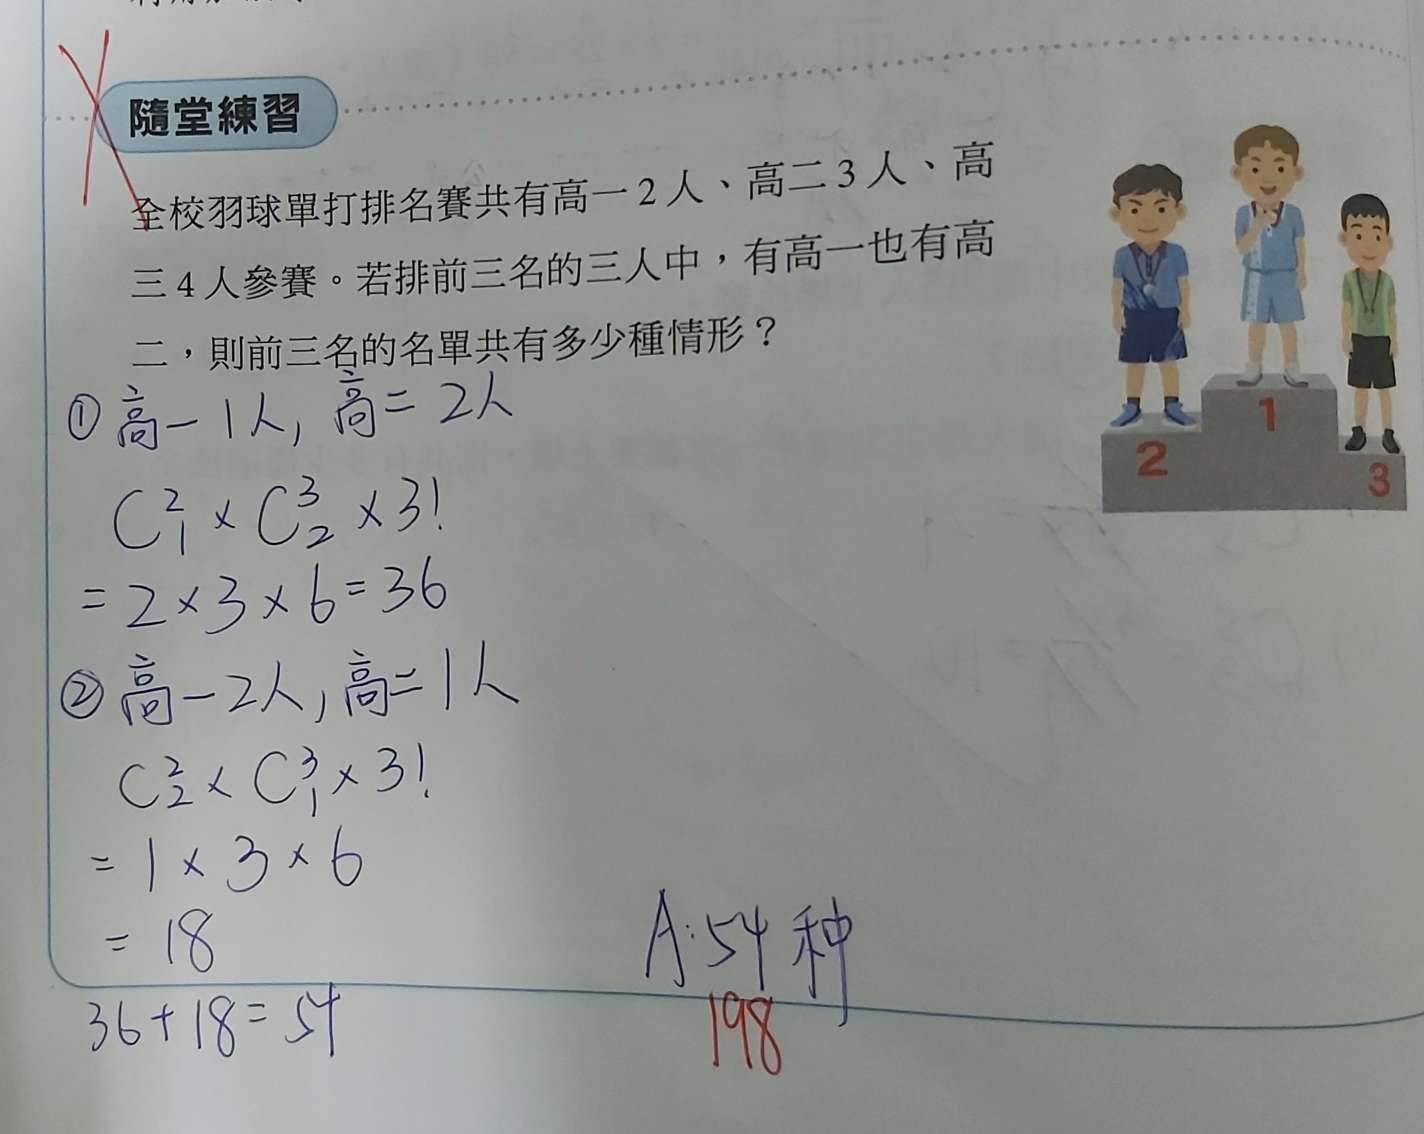 隨堂練習
全校羽球單打排名賽共有高一2人、高二3人、高
三4人參賽。若排前三名的三人中，有高一也有高
二，則前三名的名單共有多少種情形？
① 高一1人, 高二2人
C²₁ × C³₂ × 3!
= 2 × 3 × 6 = 36
② 高一2人, 高二1人
C²₂ × C³₁ × 3!
= 1 × 3 × 6
= 18
36 + 18 = 54
A: 54 种
198
1
2
3